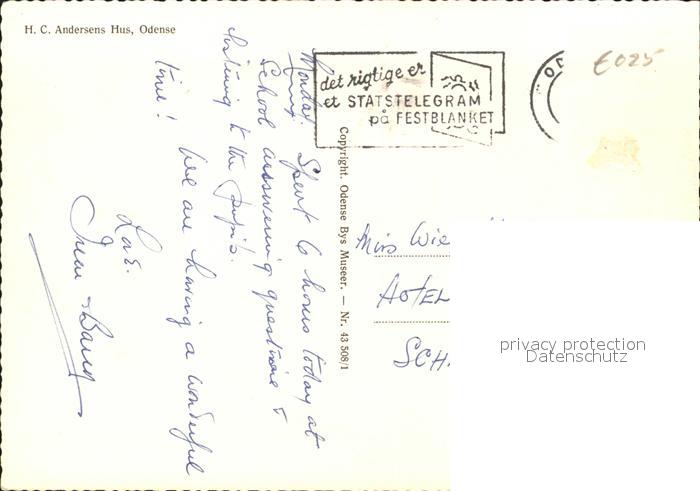 H. C. Andersens Hus, Odense
det rigtige er
et STATSTELEGRAM
på FESTBLANKET
€025
Monday.
Spent 6 hours today at
School answering questions &
listening to the pupils.
We are having a wonderful
time!
Love.
Copyright. Odense Bys Museer. — Nr. 43 508/1
Miss
HOTEL
SCH.
privacy protection
Datenschutz